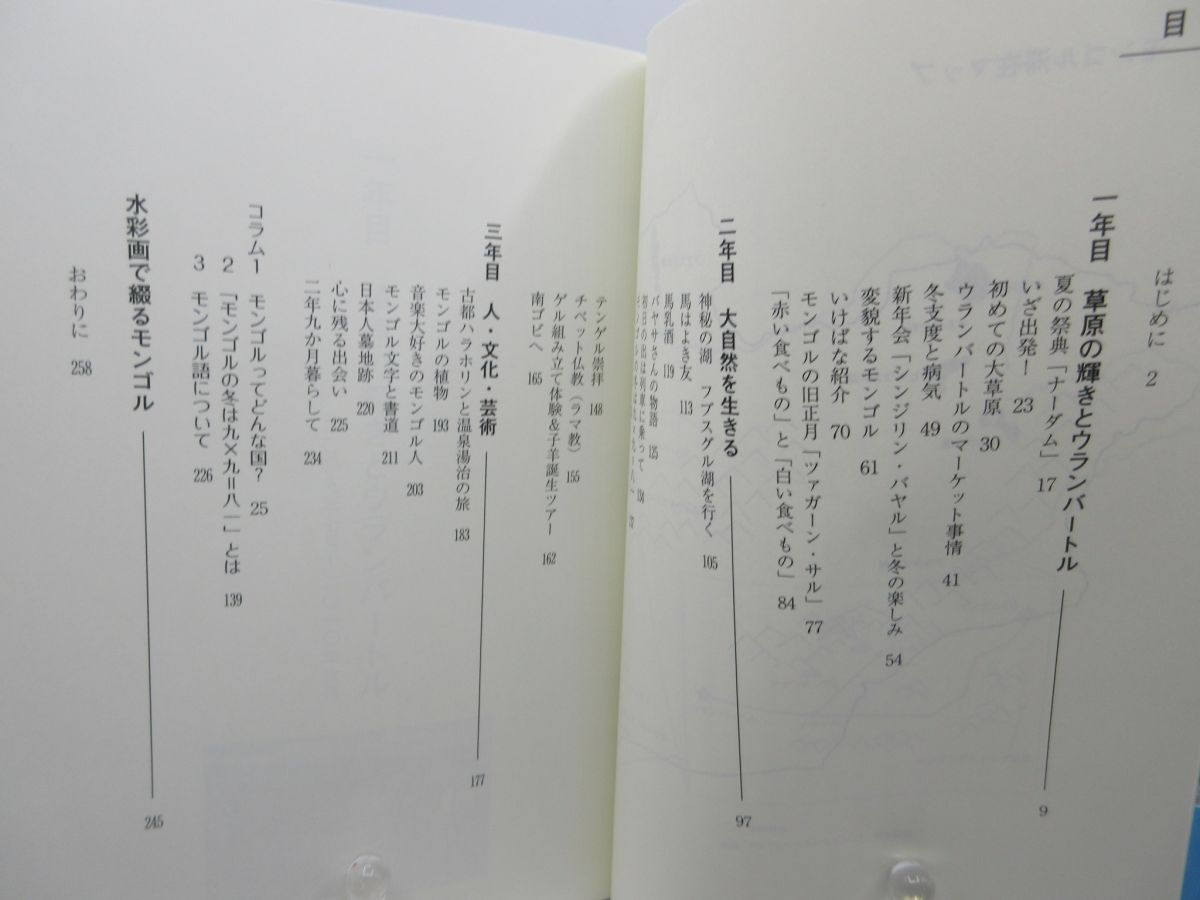 目
はじめに 2
一年目 草原の輝きとウランバートル 9
夏の祭典「ナーダム」 17
いざ出発! 23
初めての大草原 30
ウランバートルのマーケット事情 41
冬支度と病気 49
新年会「シンジリン・バヤル」と冬の楽しみ 54
変貌するモンゴル 61
いけばな紹介 70
モンゴルの旧正月「ツァガーン・サル」 77
「赤い食べもの」と「白い食べもの」 84
二年目 大自然を生きる 97
神秘の湖 フブスグル湖を行く 105
馬はよき友 113
馬乳酒 119
バヤサさんの物語 125
初日の出は列車に乗って 134
テンゲル崇拝 148
チベット仏教(ラマ教) 155
ゲル組み立て体験&子羊誕生ツアー 162
南ゴビへ 165
三年目 人・文化・芸術 177
古都ハラホリンと温泉湯治の旅 183
モンゴルの植物 193
音楽大好きのモンゴル人 203
モンゴル文字と書道 211
日本人墓地跡 220
心に残る出会い 225
二年九か月暮らして 234
コラム1 モンゴルってどんな国? 25
2 「モンゴルの冬は九×九=八一」とは 139
3 モンゴル語について 226
水彩画で綴るモンゴル 245
おわりに 258